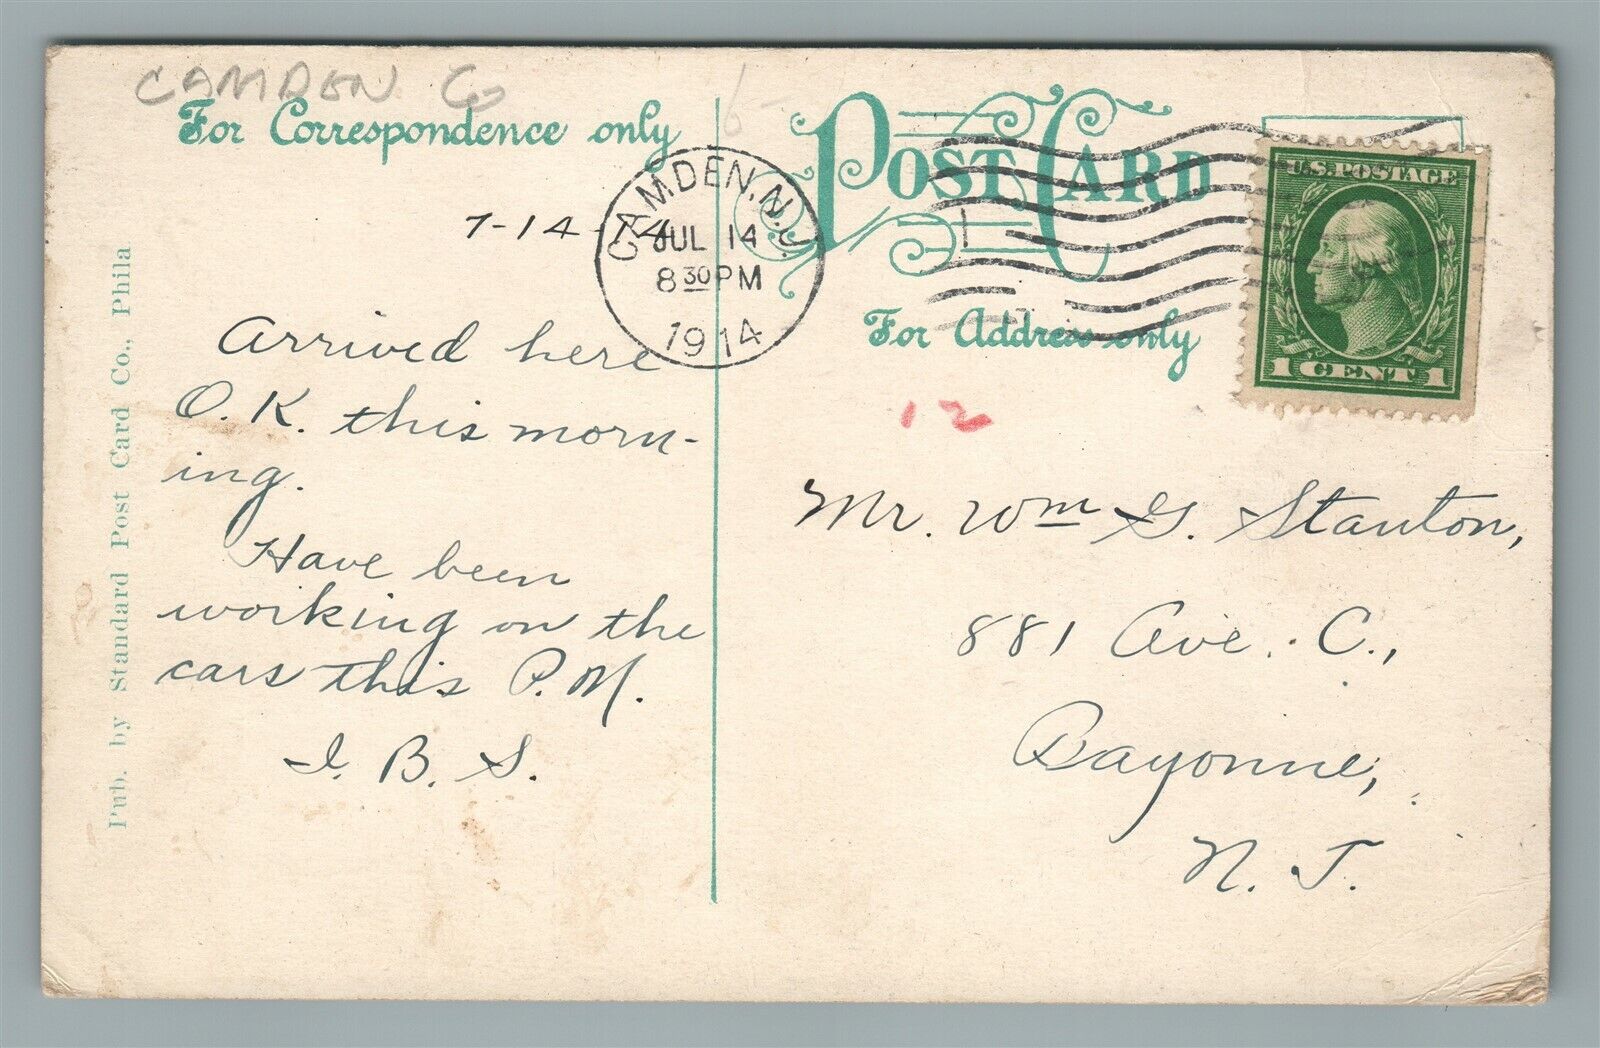 CAMDEN Co
For Correspondence only
POST CARD
CAMDEN, N.J.
JUL 14
8 30 PM
1914
U.S. POSTAGE
1 CENT 1
For Address only
7-14-14
Arrived here
O.K. this morn-
ing.
Have been
working on the
cars this P.M.
I. B. S.
12
Mr. Wm G. Stanton,
881 Ave. C.,
Bayonne,
N. J.
Pub. by Standard Post Card Co., Phila